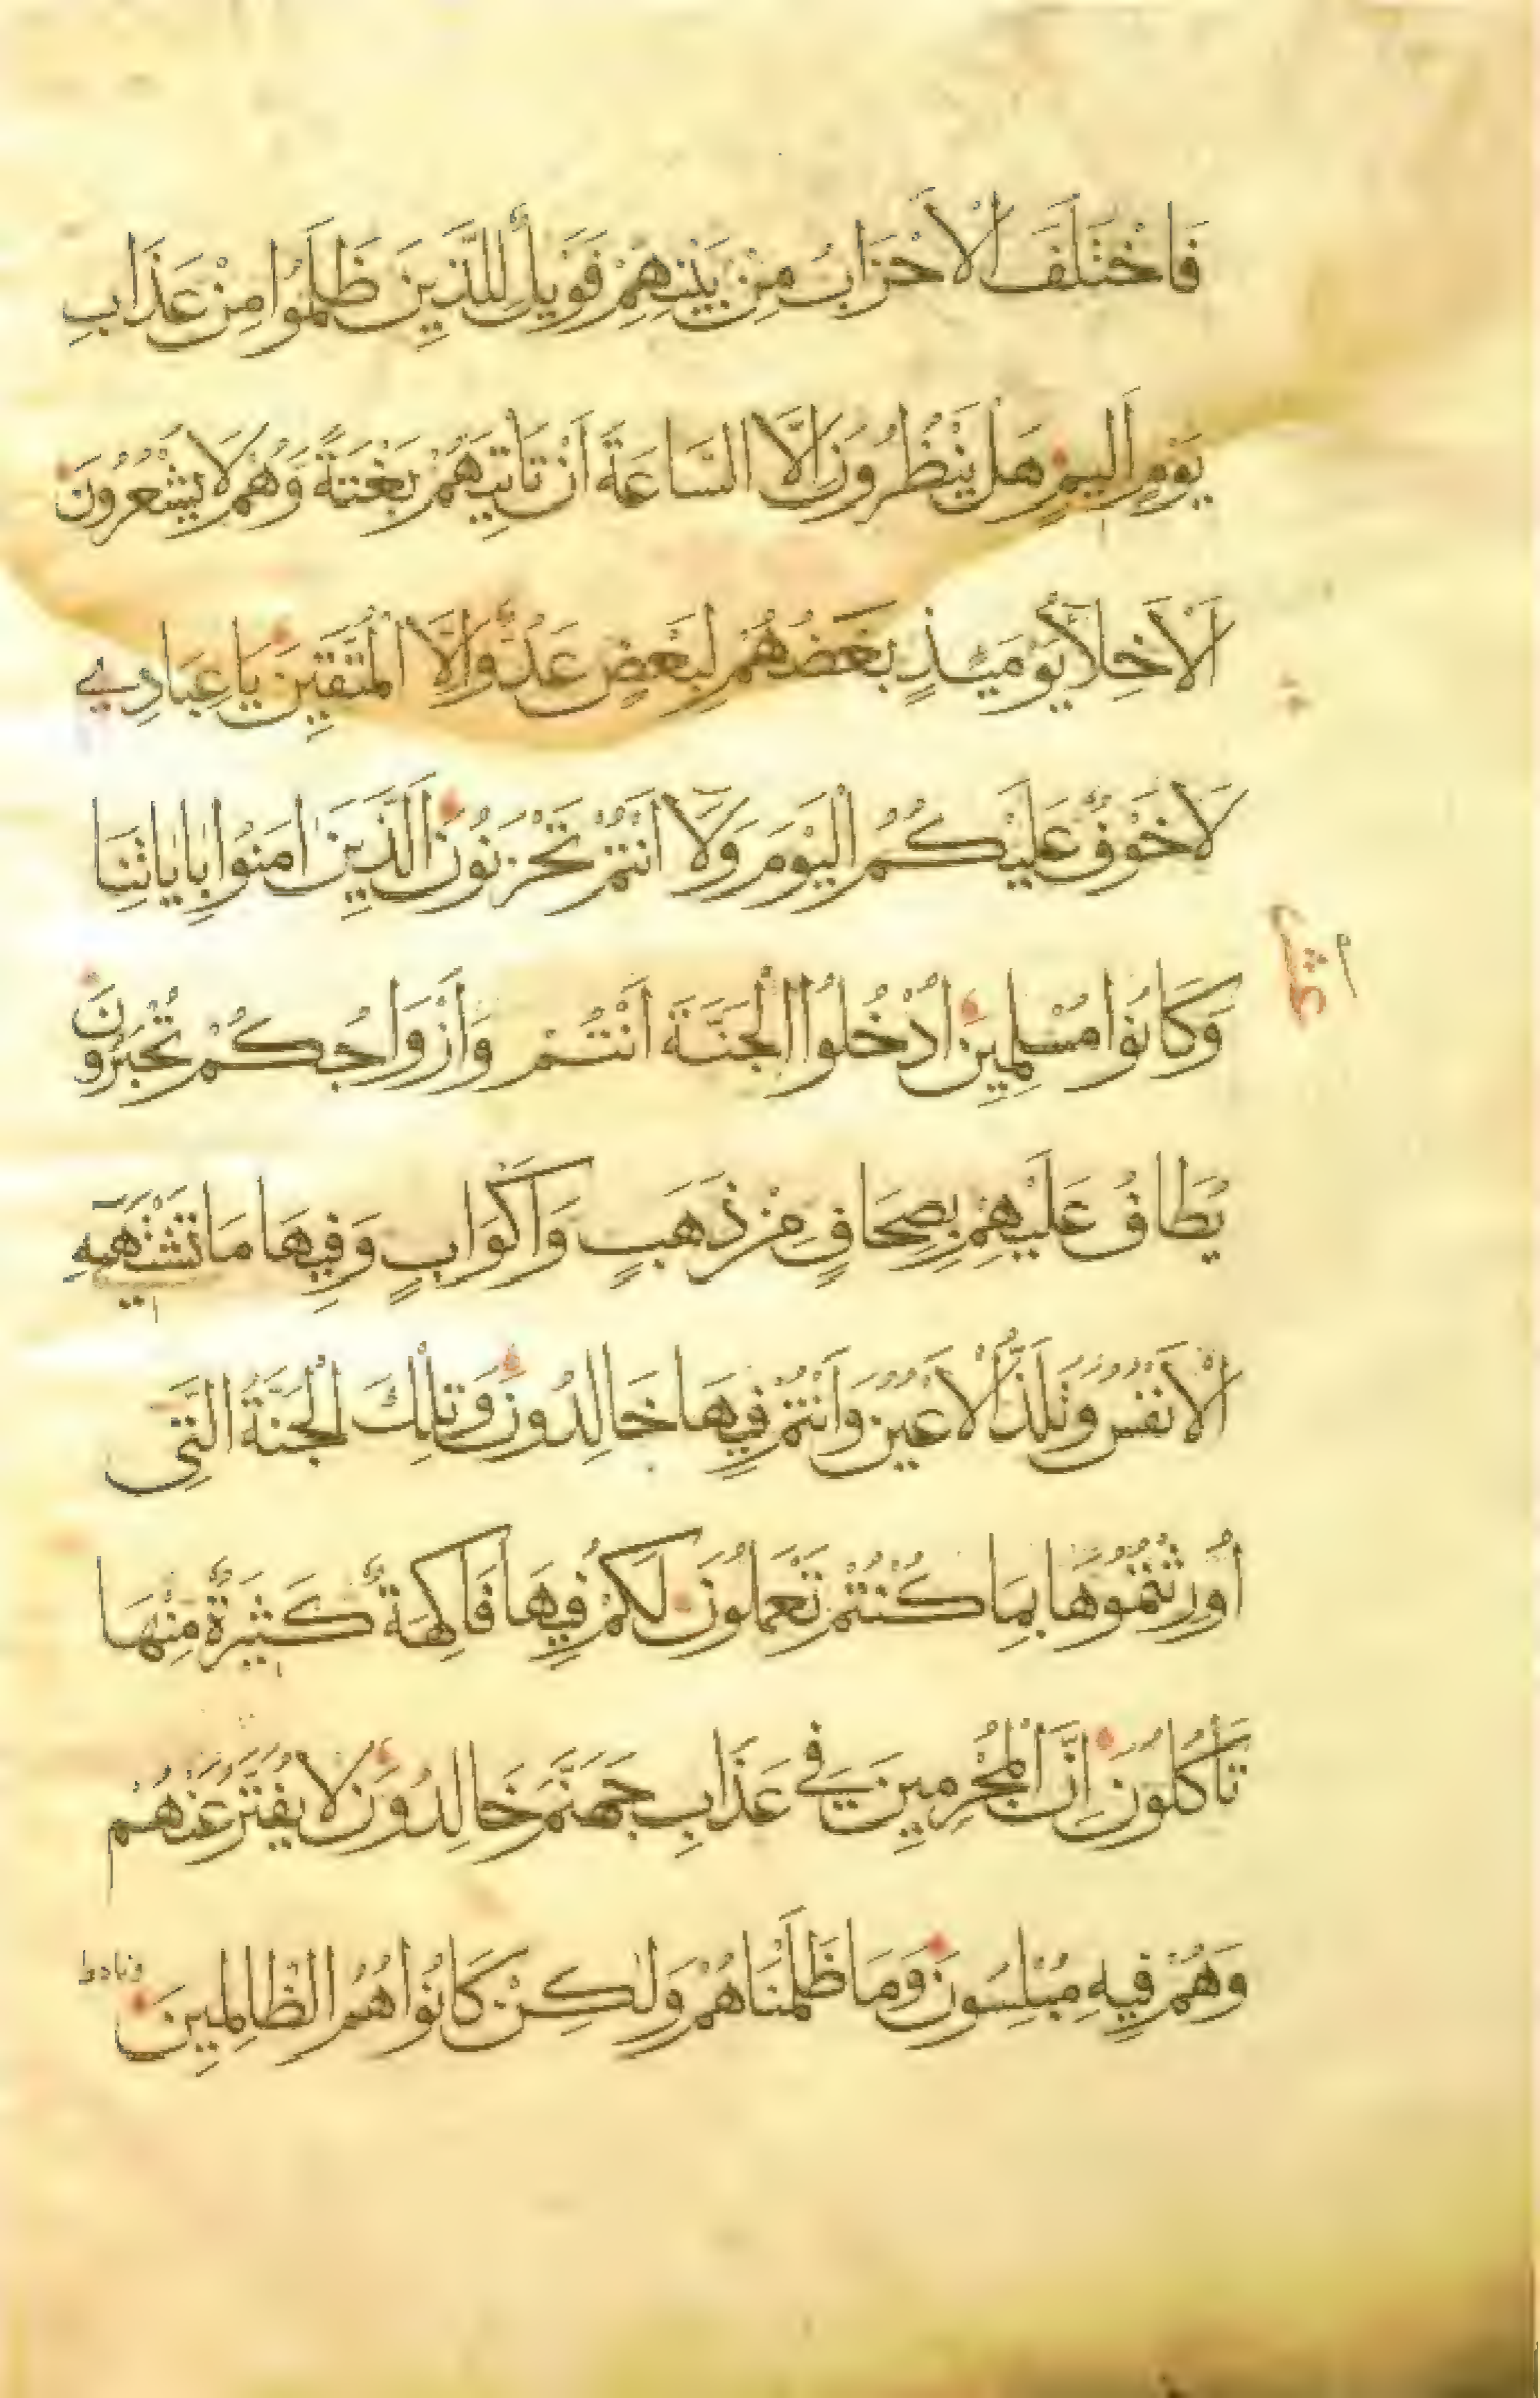 فَاخْتَلَفَ الْاَحْزَابُ مِنْ بَيْنِهِمْ فَوَيْلٌ لِلَّذِينَ ظَلَمُوا مِنْ عَذَابِ
يَوْمٍ اَلِيمٍ هَلْ يَنْظُرُونَ اِلَّا السَّاعَةَ اَنْ تَاْتِيَهُمْ بَغْتَةً وَهُمْ لَا يَشْعُرُونَ
اَلْاَخِلَّاءُ يَوْمَئِذٍ بَعْضُهُمْ لِبَعْضٍ عَدُوٌّ اِلَّا الْمُتَّقِينَ يَا عِبَادِي
لَا خَوْفٌ عَلَيْكُمُ الْيَوْمَ وَلَا اَنْتُمْ تَحْزَنُونَ اَلَّذِينَ اٰمَنُوا بِاٰيَاتِنَا
وَكَانُوا مُسْلِمِينَ اُدْخُلُوا الْجَنَّةَ اَنْتُمْ وَاَزْوَاجُكُمْ تُحْبَرُونَ
يُطَافُ عَلَيْهِمْ بِصِحَافٍ مِنْ ذَهَبٍ وَاَكْوَابٍ وَفِيهَا مَا تَشْتَهِيهِ
الْاَنْفُسُ وَتَلَذُّ الْاَعْيُنُ وَاَنْتُمْ فِيهَا خَالِدُونَ وَتِلْكَ الْجَنَّةُ الَّتِي
اُورِثْتُمُوهَا بِمَا كُنْتُمْ تَعْمَلُونَ لَكُمْ فِيهَا فَاكِهَةٌ كَثِيرَةٌ مِنْهَا
تَاْكُلُونَ اِنَّ الْمُجْرِمِينَ فِي عَذَابِ جَهَنَّمَ خَالِدُونَ لَا يُفَتَّرُ عَنْهُمْ
وَهُمْ فِيهِ مُبْلِسُونَ وَمَا ظَلَمْنَاهُمْ وَلٰكِنْ كَانُوا هُمُ الظَّالِمِينَ